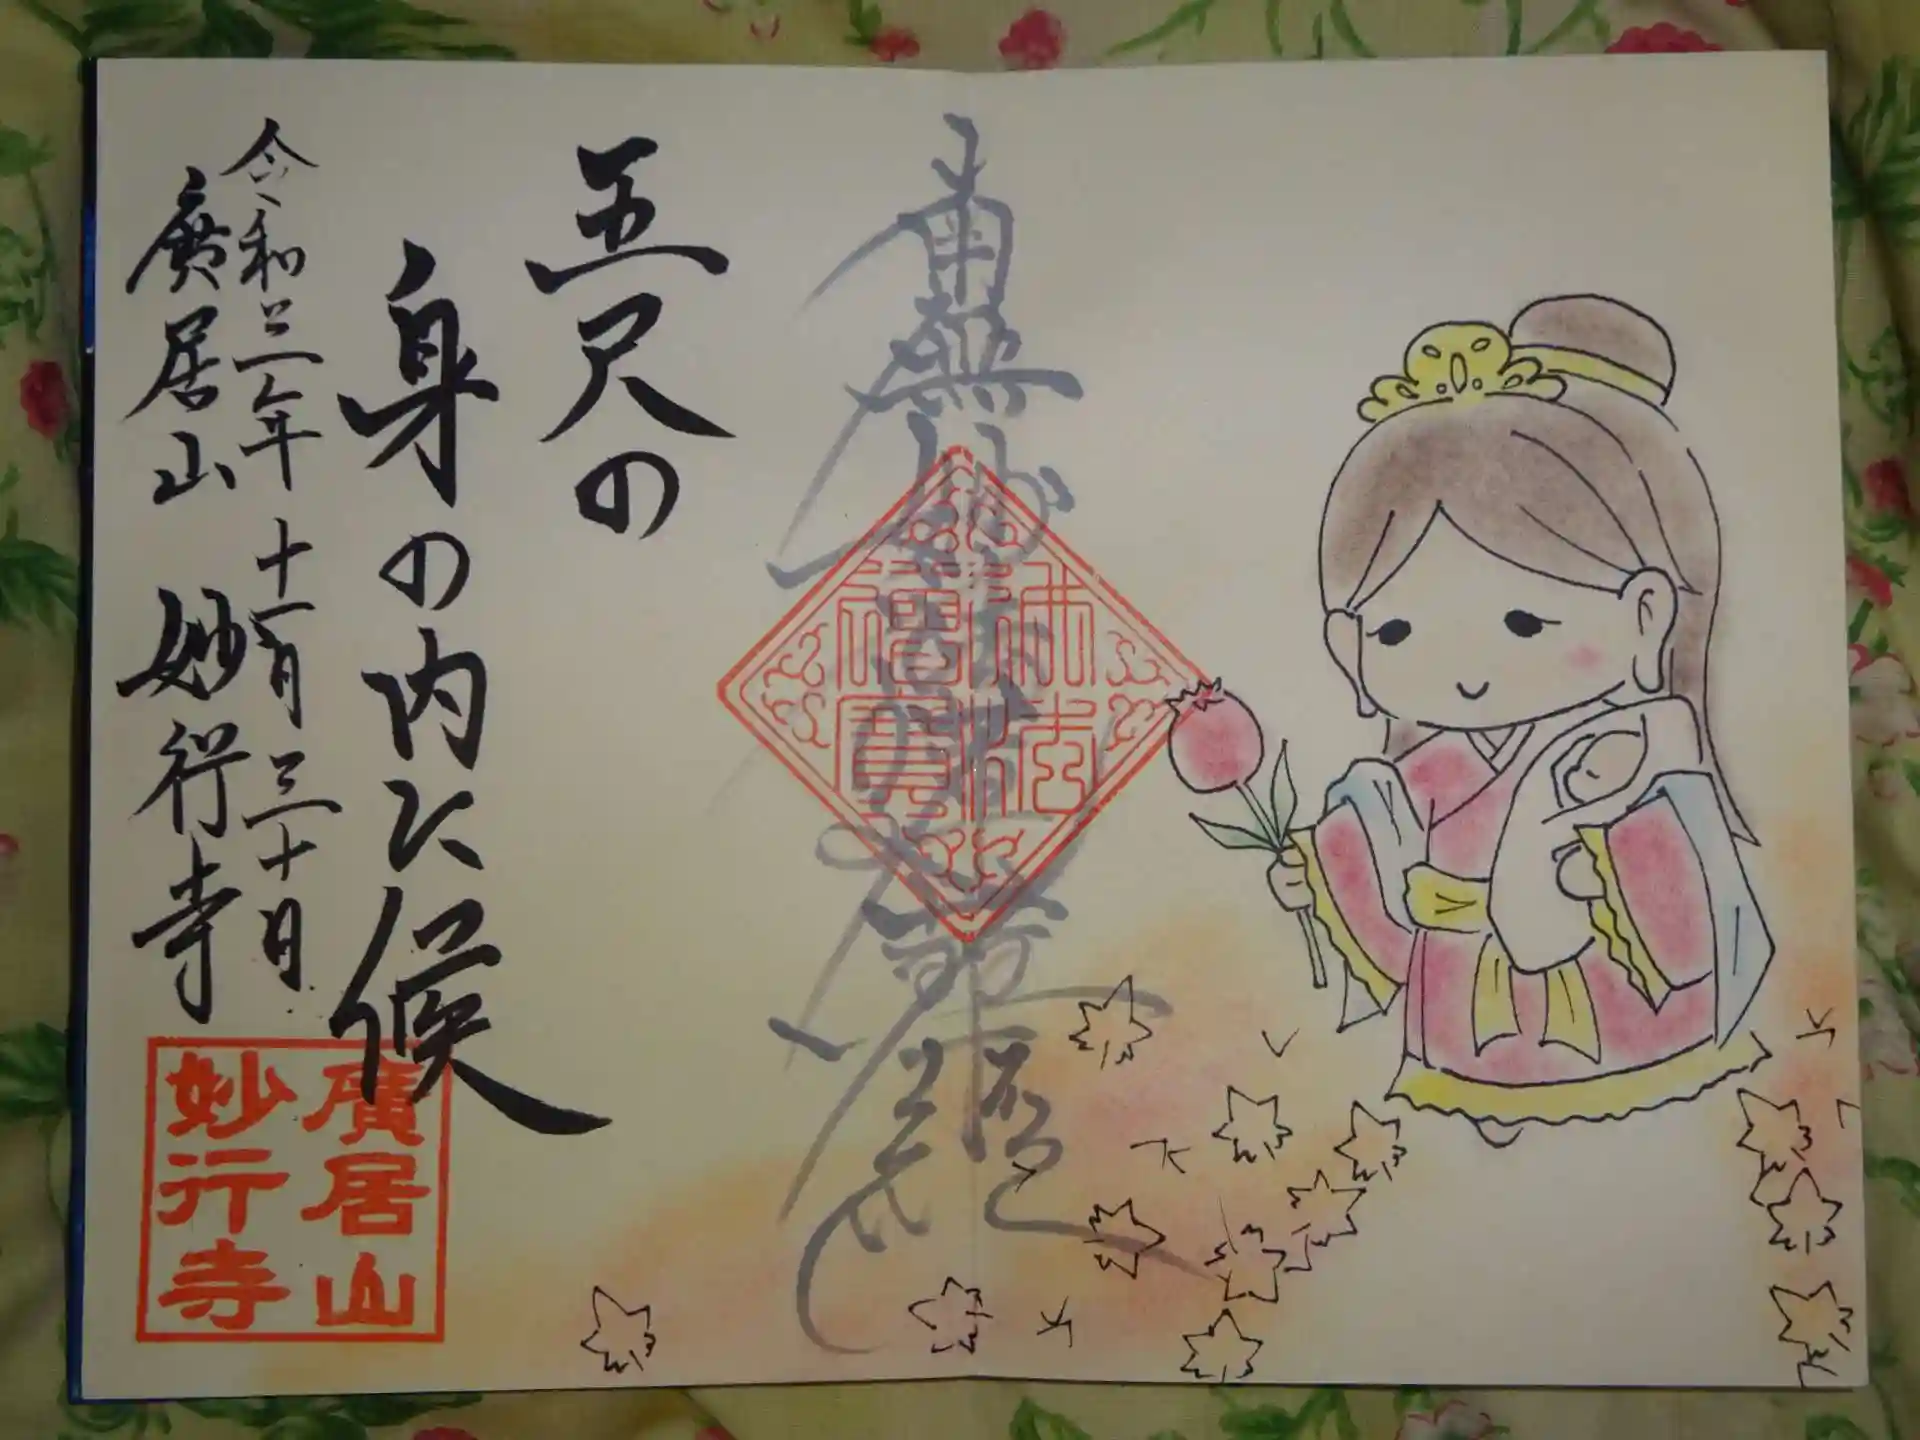 南無妙法蓮華経
佛法
僧寶
五尺の
身の内に候
令和三年十一月三十日
廣居山 妙行寺
廣居山
妙行寺